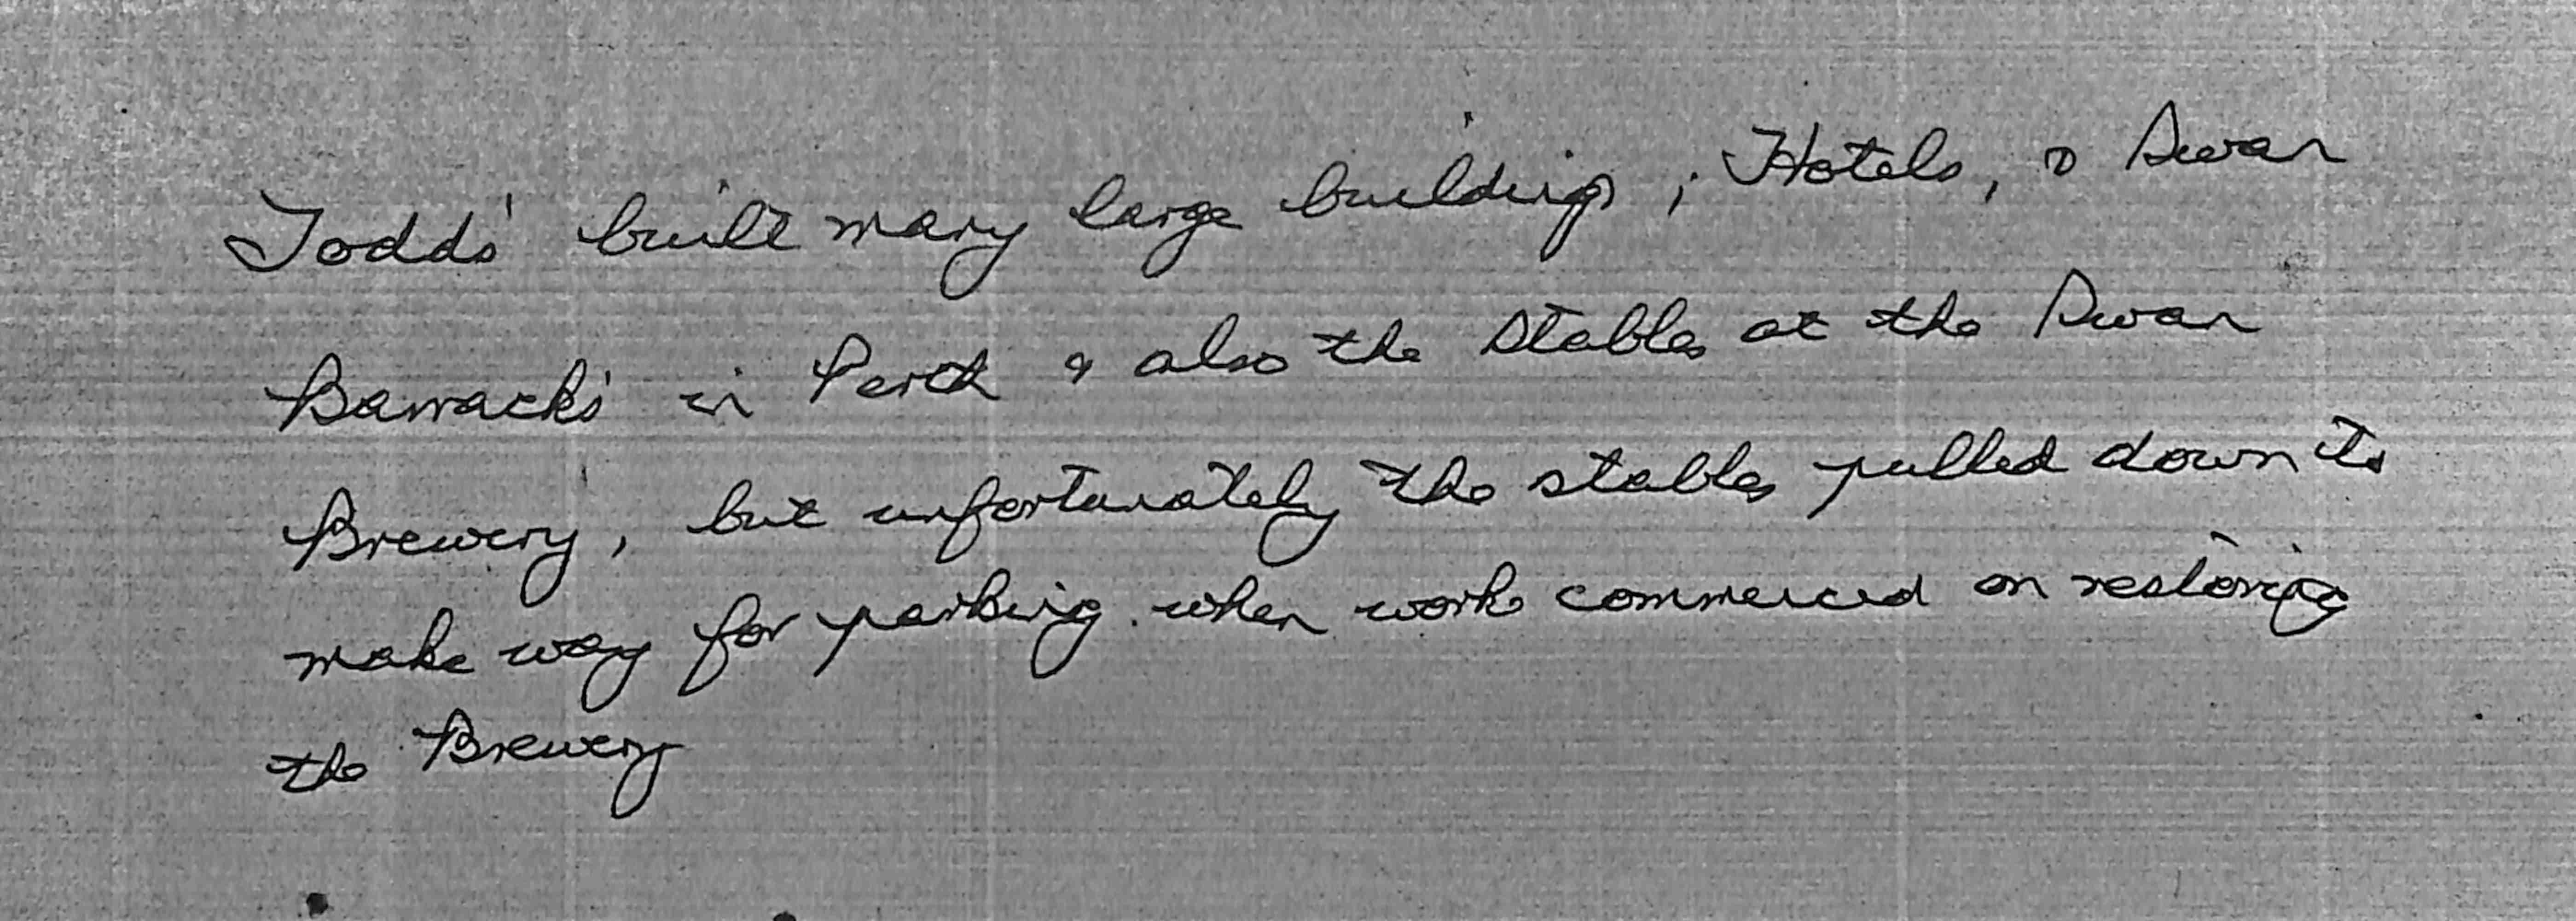 Todds' built many large buildings; Hotels, & Swan
Barracks' in Perth & also the Stables at the Swan
Brewery, but unfortunately the stables pulled down to
make way for parking when work commenced on restoring
the Brewery